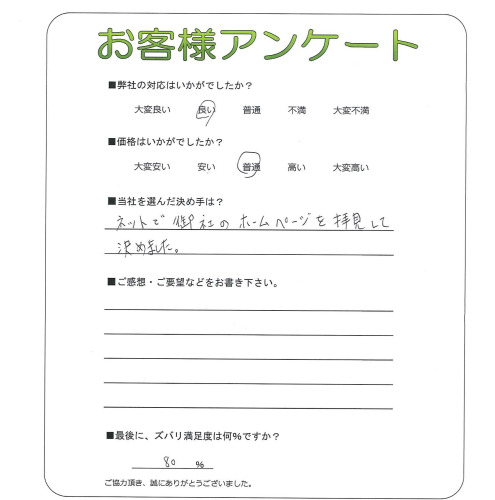 お客様アンケート
■弊社の対応はいかがでしたか？
大変良い 良い 普通 不満 大変不満
■価格はいかがでしたか？
大変安い 安い 普通 高い 大変高い
■当社を選んだ決め手は？
ネットで御社のホームページを拝見して
決めました。
■ご感想・ご要望などをお書き下さい。
■最後に、ズバリ満足度は何％ですか？
80 ％
ご協力頂き、誠にありがとうございました。